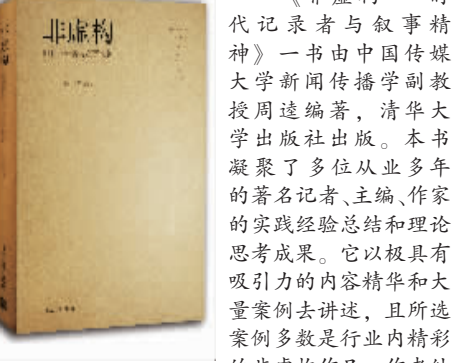 非虚构
代记录者与叙事精
神》一书由中国传媒
大学新闻传播学副教
授周逵编著，清华大
学出版社出版。本书
凝聚了多位从业多年
的著名记者、主编、作家
的实践经验总结和理论
思考成果。它以极具有
吸引力的内容精华和大
量案例去讲述，且所选
案例多数是行业内精彩